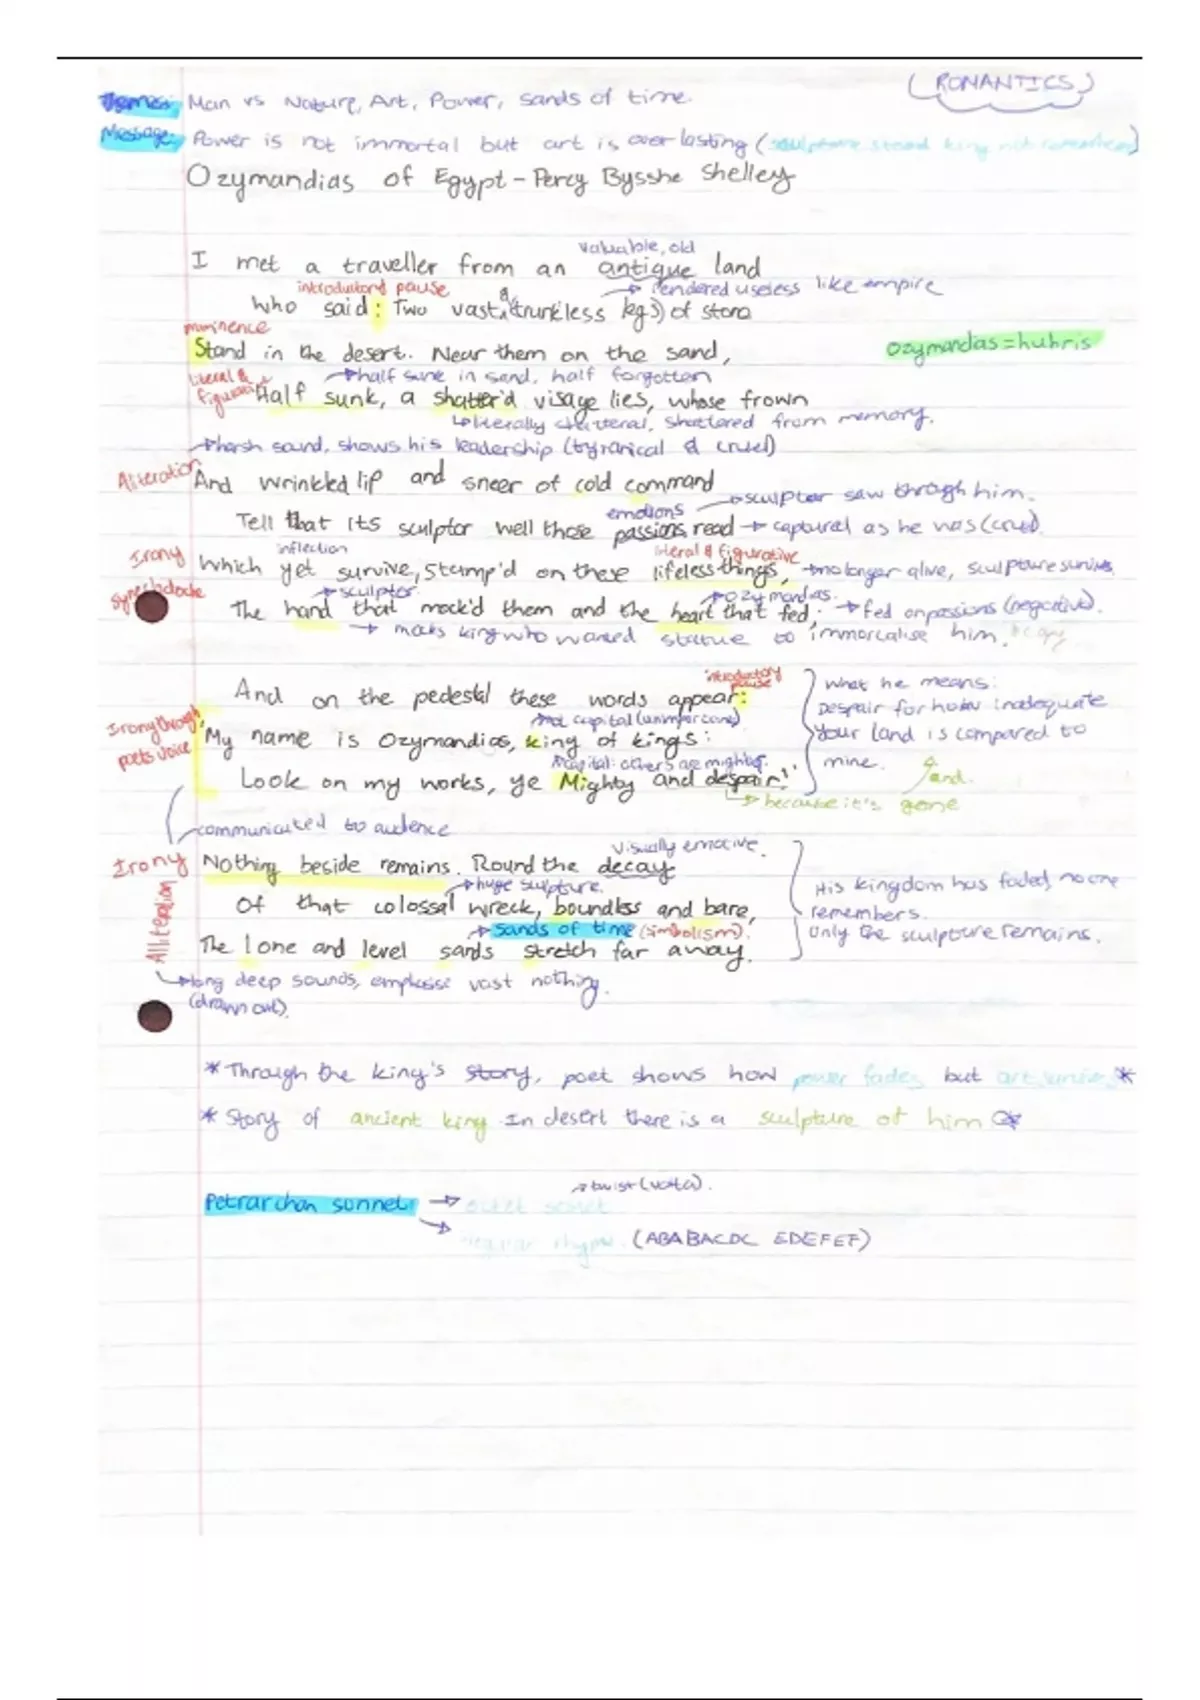 (ROMANTICS)
Themes: Man vs Nature, Art, Power, Sands of time.
Message: Power is not immortal but art is overlasting (sculpture stood king not remembered)
Ozymandias of Egypt - Percy Bysshe Shelley
valuable, old
I met a traveller from an antique land
introductory pause → rendered useless like empire
Who said: Two vast & trunkless legs of stone
prominence
Stand in the desert. Near them on the sand,
Ozymandias = hubris
literal & figurative → half sunk in sand, half forgotten
Half sunk, a shatter'd visage lies, whose frown
↳ literally shattered, shattered from memory.
→ harsh sound, shows his leadership (tyranical & cruel)
Aliteration
And wrinkled lip and sneer of cold command
→ sculptor saw through him.
emotions
Tell that its sculptor well those passions read → captured as he was (cruel).
Irony inflection literal & figurative
Which yet survive, Stamp'd on these lifeless things, → no longer alive, sculpture survives
synechdoche → sculptor. → Ozymandias.
The hand that mock'd them and the heart that fed; → fed on passions (negative).
→ mocks king who wanted statue to immortalise him.
introductory pause
And on the pedestal these words appear:
→ not capital (unimportant)
Irony through poets voice
'My name is Ozymandias, king of kings:
capital: others are mighty.
Look on my works, ye Mighty and despair!'
→ because it's gone
What he means:
Despair for how inadequate
your land is compared to
mine.
and.
communicated to audience
visually emotive.
Irony
Nothing beside remains. Round the decay
→ huge sculpture.
Of that colossal wreck, boundless and bare,
→ Sands of time (simbolism).
The lone and level sands stretch far away.
Alliteration
His kingdom has faded, no one
remembers.
Only the sculpture remains.
↳ long deep sounds, emphasise vast nothing.
(drawn out).
* Through the king's story, poet shows how power fades but art survives *
* Story of ancient king. In desert there is a sculpture of him *
→ twist (volta).
Petrarchan sonnet → octet sestet
→ regular rhyme. (ABABACDC EDEFEF)